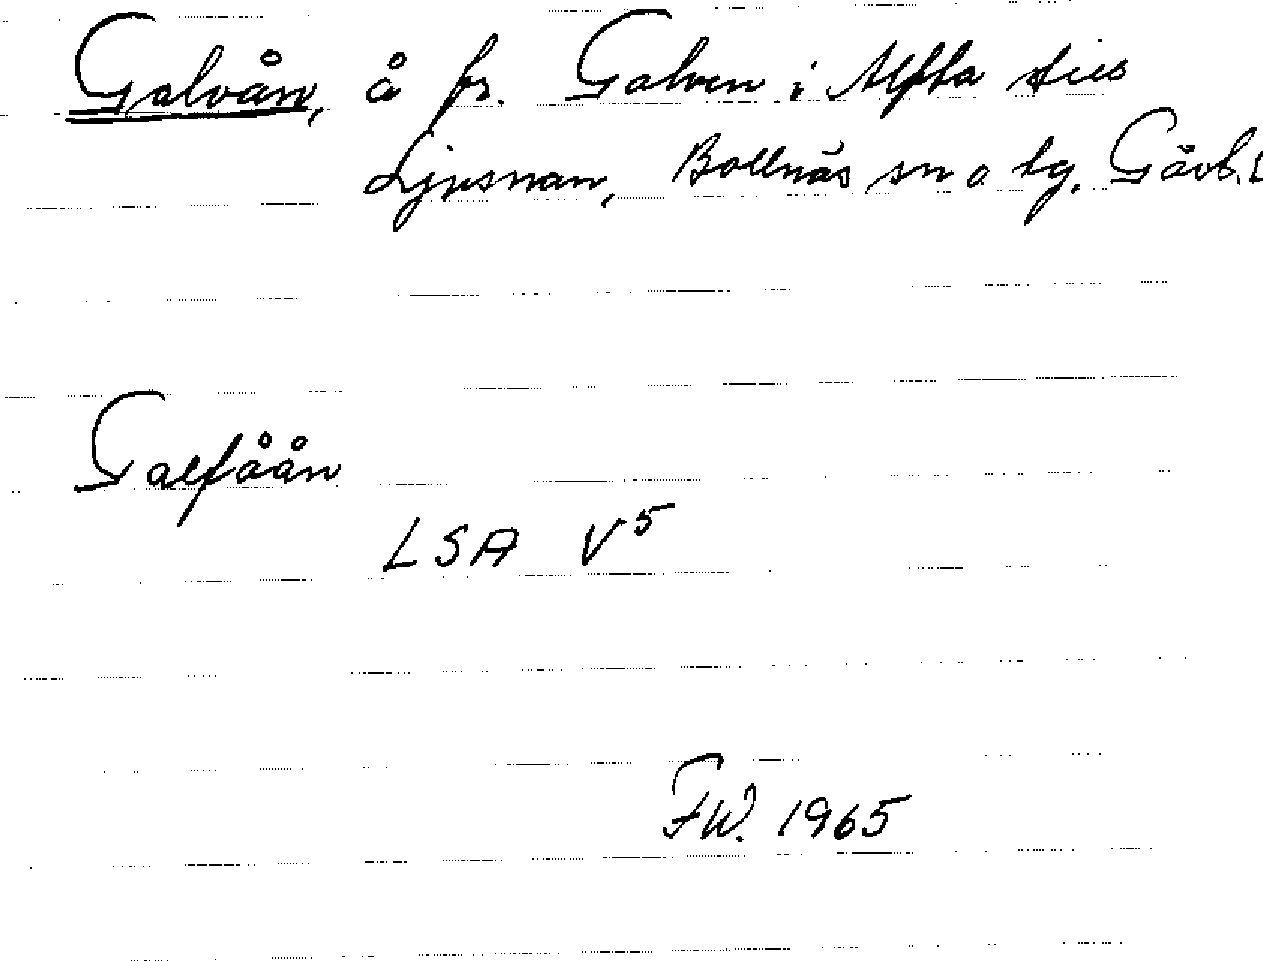 Galvån, å fr. Galven i Alfta till
Ljusnan, Bollnäs sn o tg. Gävb. l
Galfåån
LSA V5
FW. 1965